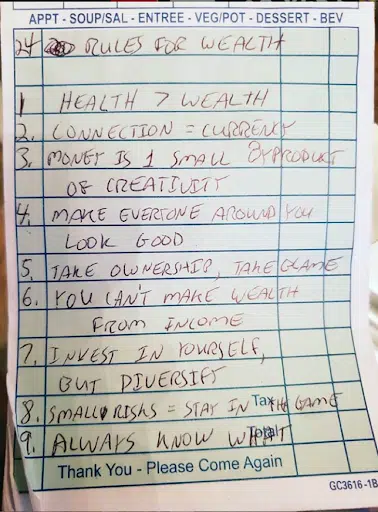 APPT - SOUP/SAL - ENTREE - VEG/POT - DESSERT - BEV
24 RULES FOR WEALTH
1 HEALTH > WEALTH
2. CONNECTION = CURRENCY
3. MONEY IS 1 SMALL BYPRODUCT
OF CREATIVITY
4. MAKE EVERYONE AROUND YOU
LOOK GOOD
5. TAKE OWNERSHIP, TAKE BLAME
6. YOU CAN'T MAKE WEALTH
FROM INCOME
7. INVEST IN YOURSELF,
BUT DIVERSIFY
8. SMALL RISKS = STAY IN THE GAME
Tax
9. ALWAYS KNOW WHAT
Total
Thank You - Please Come Again
GC3616-1B